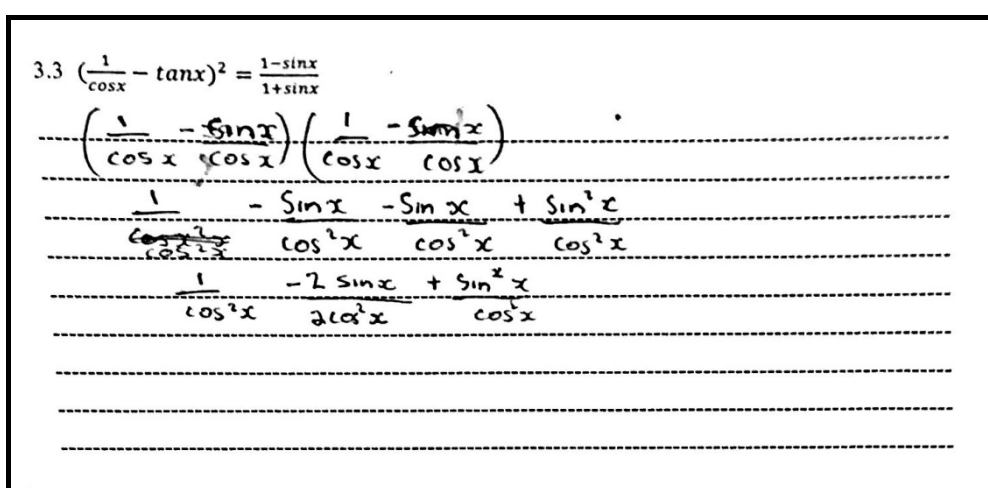 3.3 (1/cosx − tanx)² = (1−sinx)/(1+sinx)
(1/cos x − sin x/cos x) (1/cos x − sin x/cos x)
1/cos²x − Sin x/cos²x − Sin x/cos²x + Sin²x/cos²x
1/cos²x − 2 sin x/2cos²x + Sin²x/cos²x